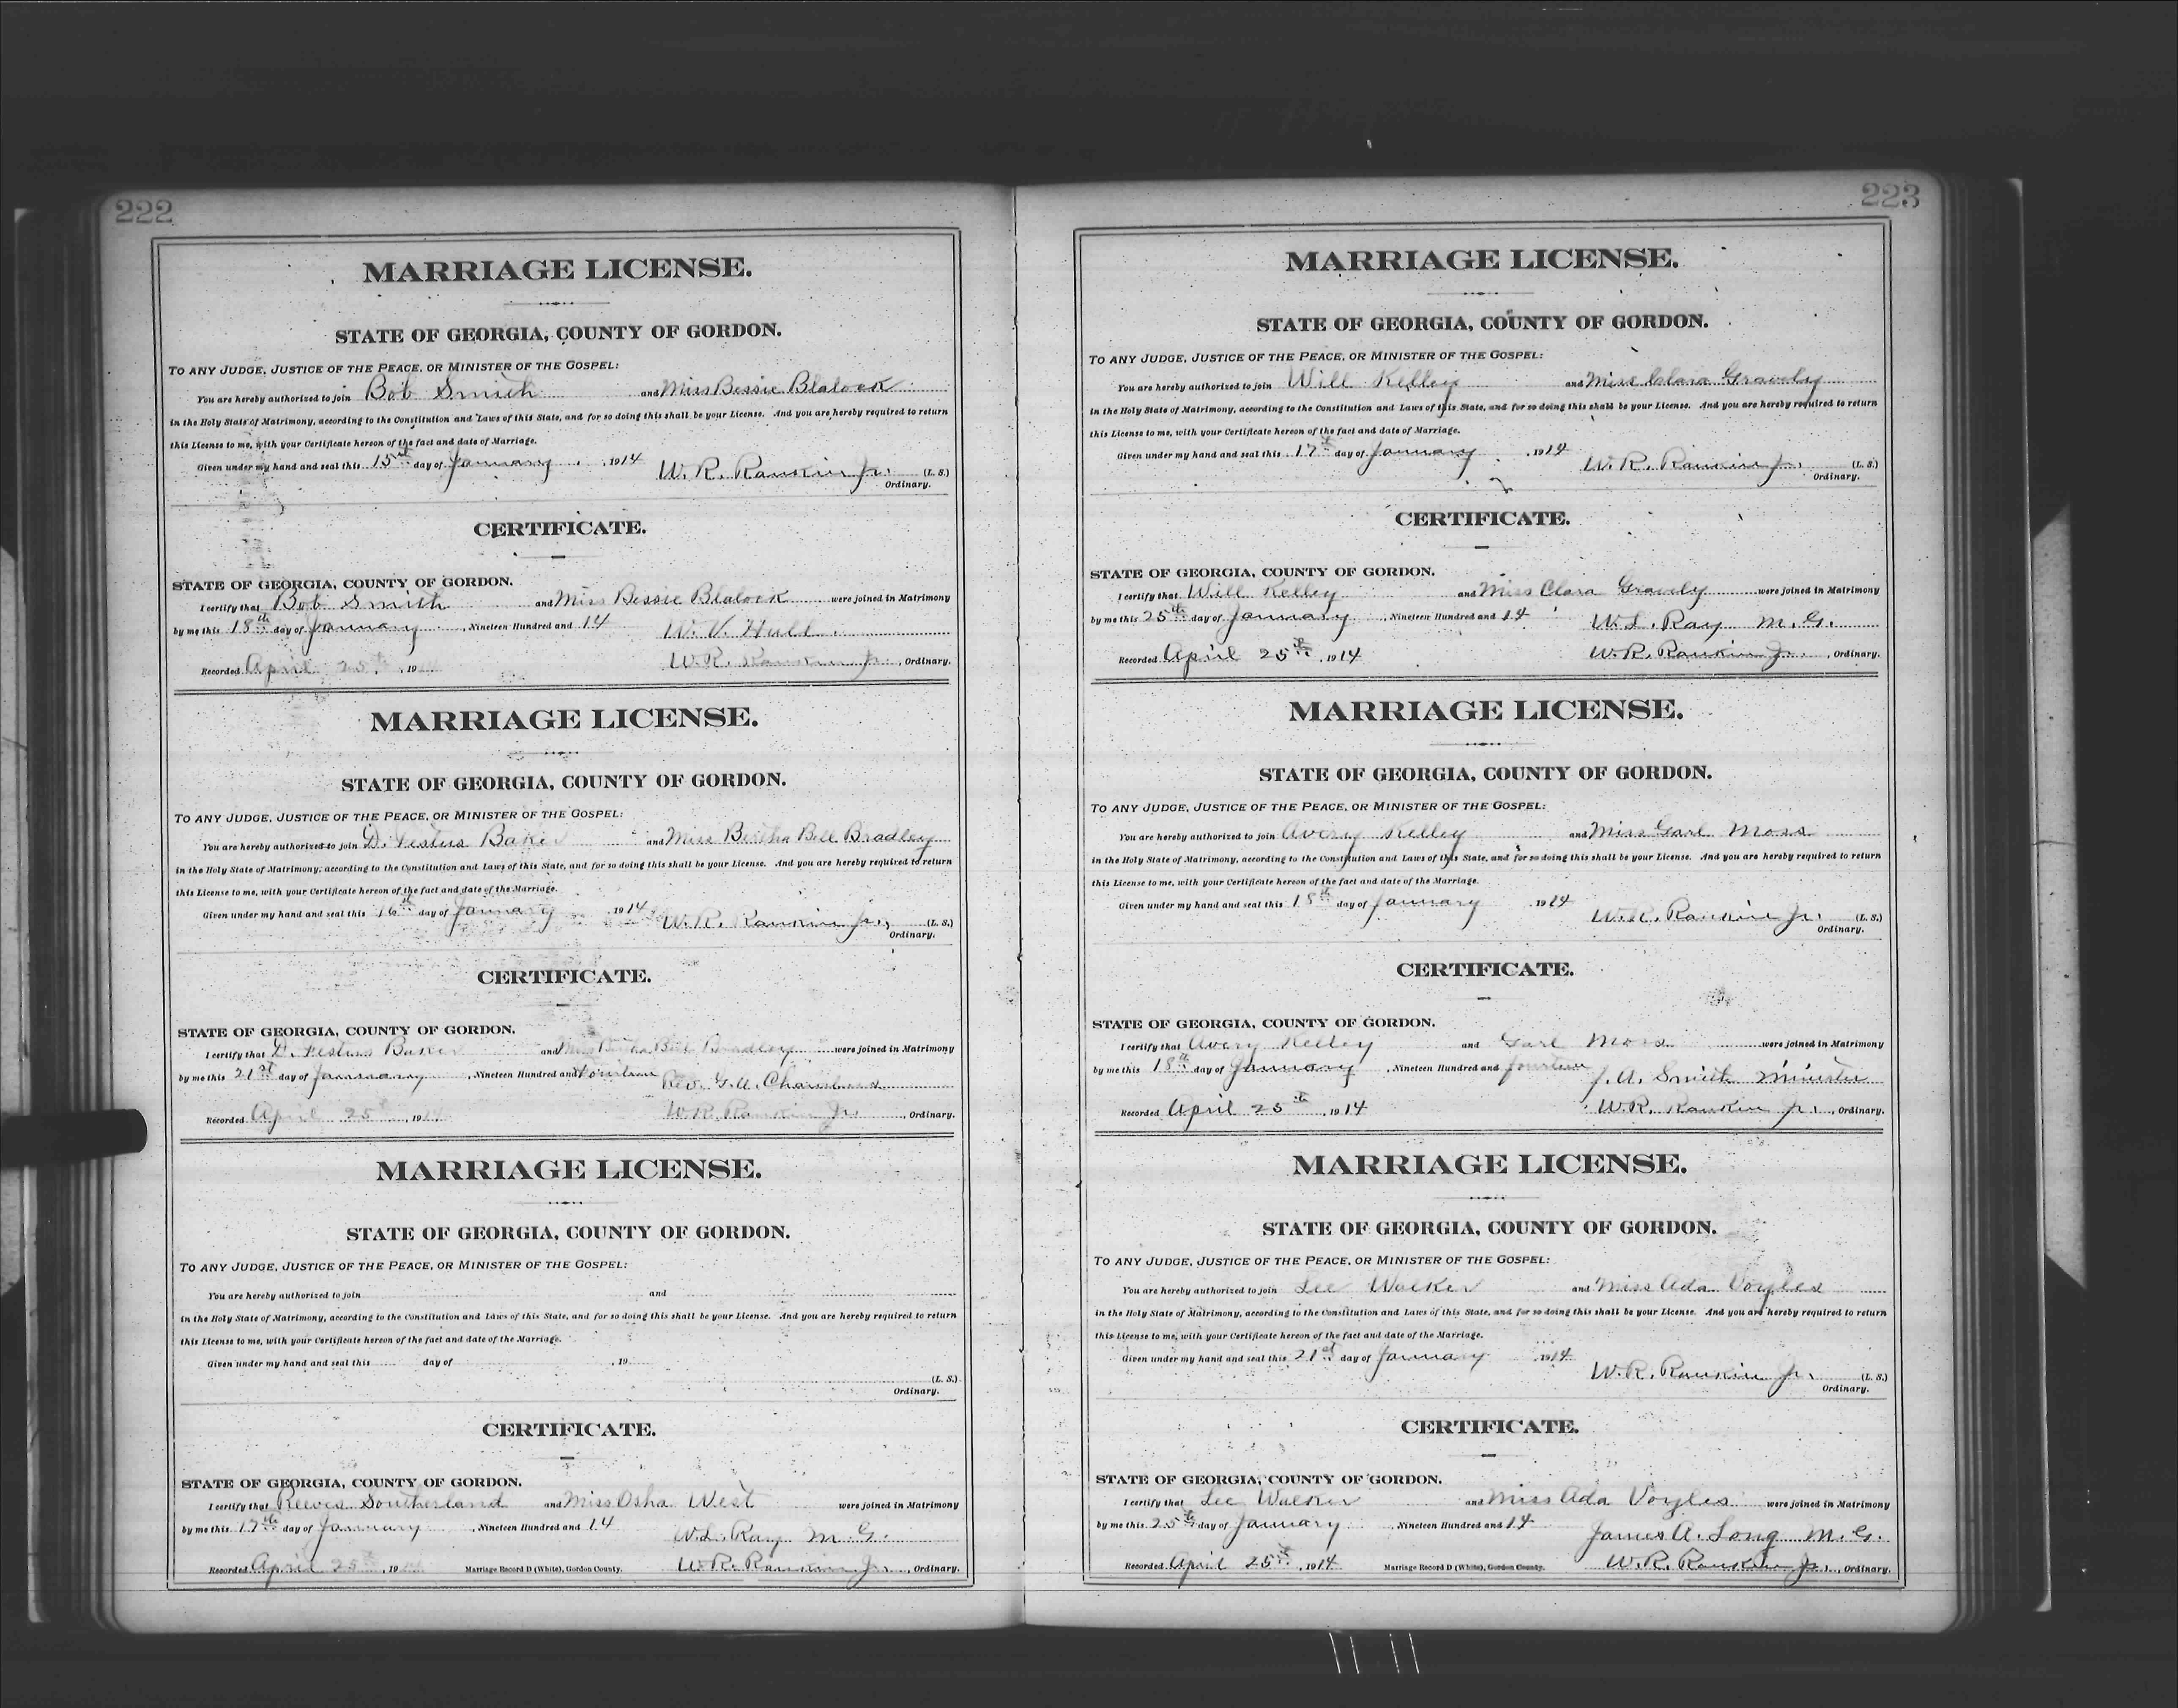 222
MARRIAGE LICENSE.
STATE OF GEORGIA, COUNTY OF GORDON.
TO ANY JUDGE, JUSTICE OF THE PEACE, OR MINISTER OF THE GOSPEL:
You are hereby authorized to join Bob Smith and Miss Bessie Blalock
in the Holy State of Matrimony, according to the Constitution and Laws of this State, and for so doing this shall be your License. And you are hereby required to return
this License to me, with your Certificate hereon of the fact and date of Marriage.
Given under my hand and seal this 15th day of January, 1914 W. R. Rankin Jr. (L. S.)
Ordinary.
CERTIFICATE.
STATE OF GEORGIA, COUNTY OF GORDON.
I certify that Bob Smith and Miss Bessie Blalock were joined in Matrimony
by me this 18th day of January, Nineteen Hundred and 14 W. V. Hall
Recorded April 25th, 19 W. R. Rankin Jr., Ordinary.
MARRIAGE LICENSE.
STATE OF GEORGIA, COUNTY OF GORDON.
TO ANY JUDGE, JUSTICE OF THE PEACE, OR MINISTER OF THE GOSPEL:
You are hereby authorized to join D. Festus Baker and Miss Bertha Bell Bradley
in the Holy State of Matrimony, according to the Constitution and Laws of this State, and for so doing this shall be your License. And you are hereby required to return
this License to me, with your Certificate hereon of the fact and date of the Marriage.
Given under my hand and seal this 16th day of January 1914 W. R. Rankin Jr., (L. S.)
Ordinary.
CERTIFICATE.
STATE OF GEORGIA, COUNTY OF GORDON.
I certify that D. Festus Baker and Miss Bertha Bell Bradley were joined in Matrimony
by me this 21st day of January, Nineteen Hundred and Fourteen Rev. G. A.
Recorded April 25th, 1914 W. R. Rankin Jr., Ordinary.
MARRIAGE LICENSE.
STATE OF GEORGIA, COUNTY OF GORDON.
TO ANY JUDGE, JUSTICE OF THE PEACE, OR MINISTER OF THE GOSPEL:
You are hereby authorized to join and
in the Holy State of Matrimony, according to the Constitution and Laws of this State, and for so doing this shall be your License. And you are hereby required to return
this License to me, with your Certificate hereon of the fact and date of the Marriage.
Given under my hand and seal this day of, 19
(L. S.)
Ordinary.
CERTIFICATE.
STATE OF GEORGIA, COUNTY OF GORDON.
I certify that Reeves Southerland and Miss Osha West were joined in Matrimony
by me this 17th day of January, Nineteen Hundred and 14 W. L. Ray M. G.
Recorded April 25th, 19 Marriage Record D (White), Gordon County. W. R. Rankin Jr., Ordinary.
223
MARRIAGE LICENSE.
STATE OF GEORGIA, COUNTY OF GORDON.
TO ANY JUDGE, JUSTICE OF THE PEACE, OR MINISTER OF THE GOSPEL:
You are hereby authorized to join Will Kelley and Miss Clara Gravely
in the Holy State of Matrimony, according to the Constitution and Laws of this State, and for so doing this shall be your License. And you are hereby required to return
this License to me, with your Certificate hereon of the fact and date of Marriage.
Given under my hand and seal this 17th day of January, 1914 W. R. Rankin Jr. (L. S.)
Ordinary.
CERTIFICATE.
STATE OF GEORGIA, COUNTY OF GORDON.
I certify that Will Kelley and Miss Clara Gravely were joined in Matrimony
by me this 25th day of January, Nineteen Hundred and 14 W. L. Ray M. G.
Recorded April 25th, 1914 W. R. Rankin Jr., Ordinary.
MARRIAGE LICENSE.
STATE OF GEORGIA, COUNTY OF GORDON.
TO ANY JUDGE, JUSTICE OF THE PEACE, OR MINISTER OF THE GOSPEL:
You are hereby authorized to join Avery Kelley and Miss Garl Moss
in the Holy State of Matrimony, according to the Constitution and Laws of this State, and for so doing this shall be your License. And you are hereby required to return
this License to me, with your Certificate hereon of the fact and date of the Marriage.
Given under my hand and seal this 18th day of January, 1914 W. R. Rankin Jr. (L. S.)
Ordinary.
CERTIFICATE.
STATE OF GEORGIA, COUNTY OF GORDON.
I certify that Avery Kelley and Garl Moss were joined in Matrimony
by me this 18th day of January, Nineteen Hundred and fourteen J. A. Smith Minister
Recorded April 25th, 1914 W. R. Rankin Jr., Ordinary.
MARRIAGE LICENSE.
STATE OF GEORGIA, COUNTY OF GORDON.
TO ANY JUDGE, JUSTICE OF THE PEACE, OR MINISTER OF THE GOSPEL:
You are hereby authorized to join Lee Walker and Miss Ada Voyles
in the Holy State of Matrimony, according to the Constitution and Laws of this State, and for so doing this shall be your License. And you are hereby required to return
this License to me, with your Certificate hereon of the fact and date of the Marriage.
Given under my hand and seal this 21st day of January 1914 W. R. Rankin Jr. (L. S.)
Ordinary.
CERTIFICATE.
STATE OF GEORGIA, COUNTY OF GORDON.
I certify that Lee Walker and Miss Ada Voyles were joined in Matrimony
by me this 25th day of January, Nineteen Hundred and 14 James A. Long M. G.
Recorded April 25th, 1914 Marriage Record D (White), Gordon County. W. R. Rankin Jr., Ordinary.